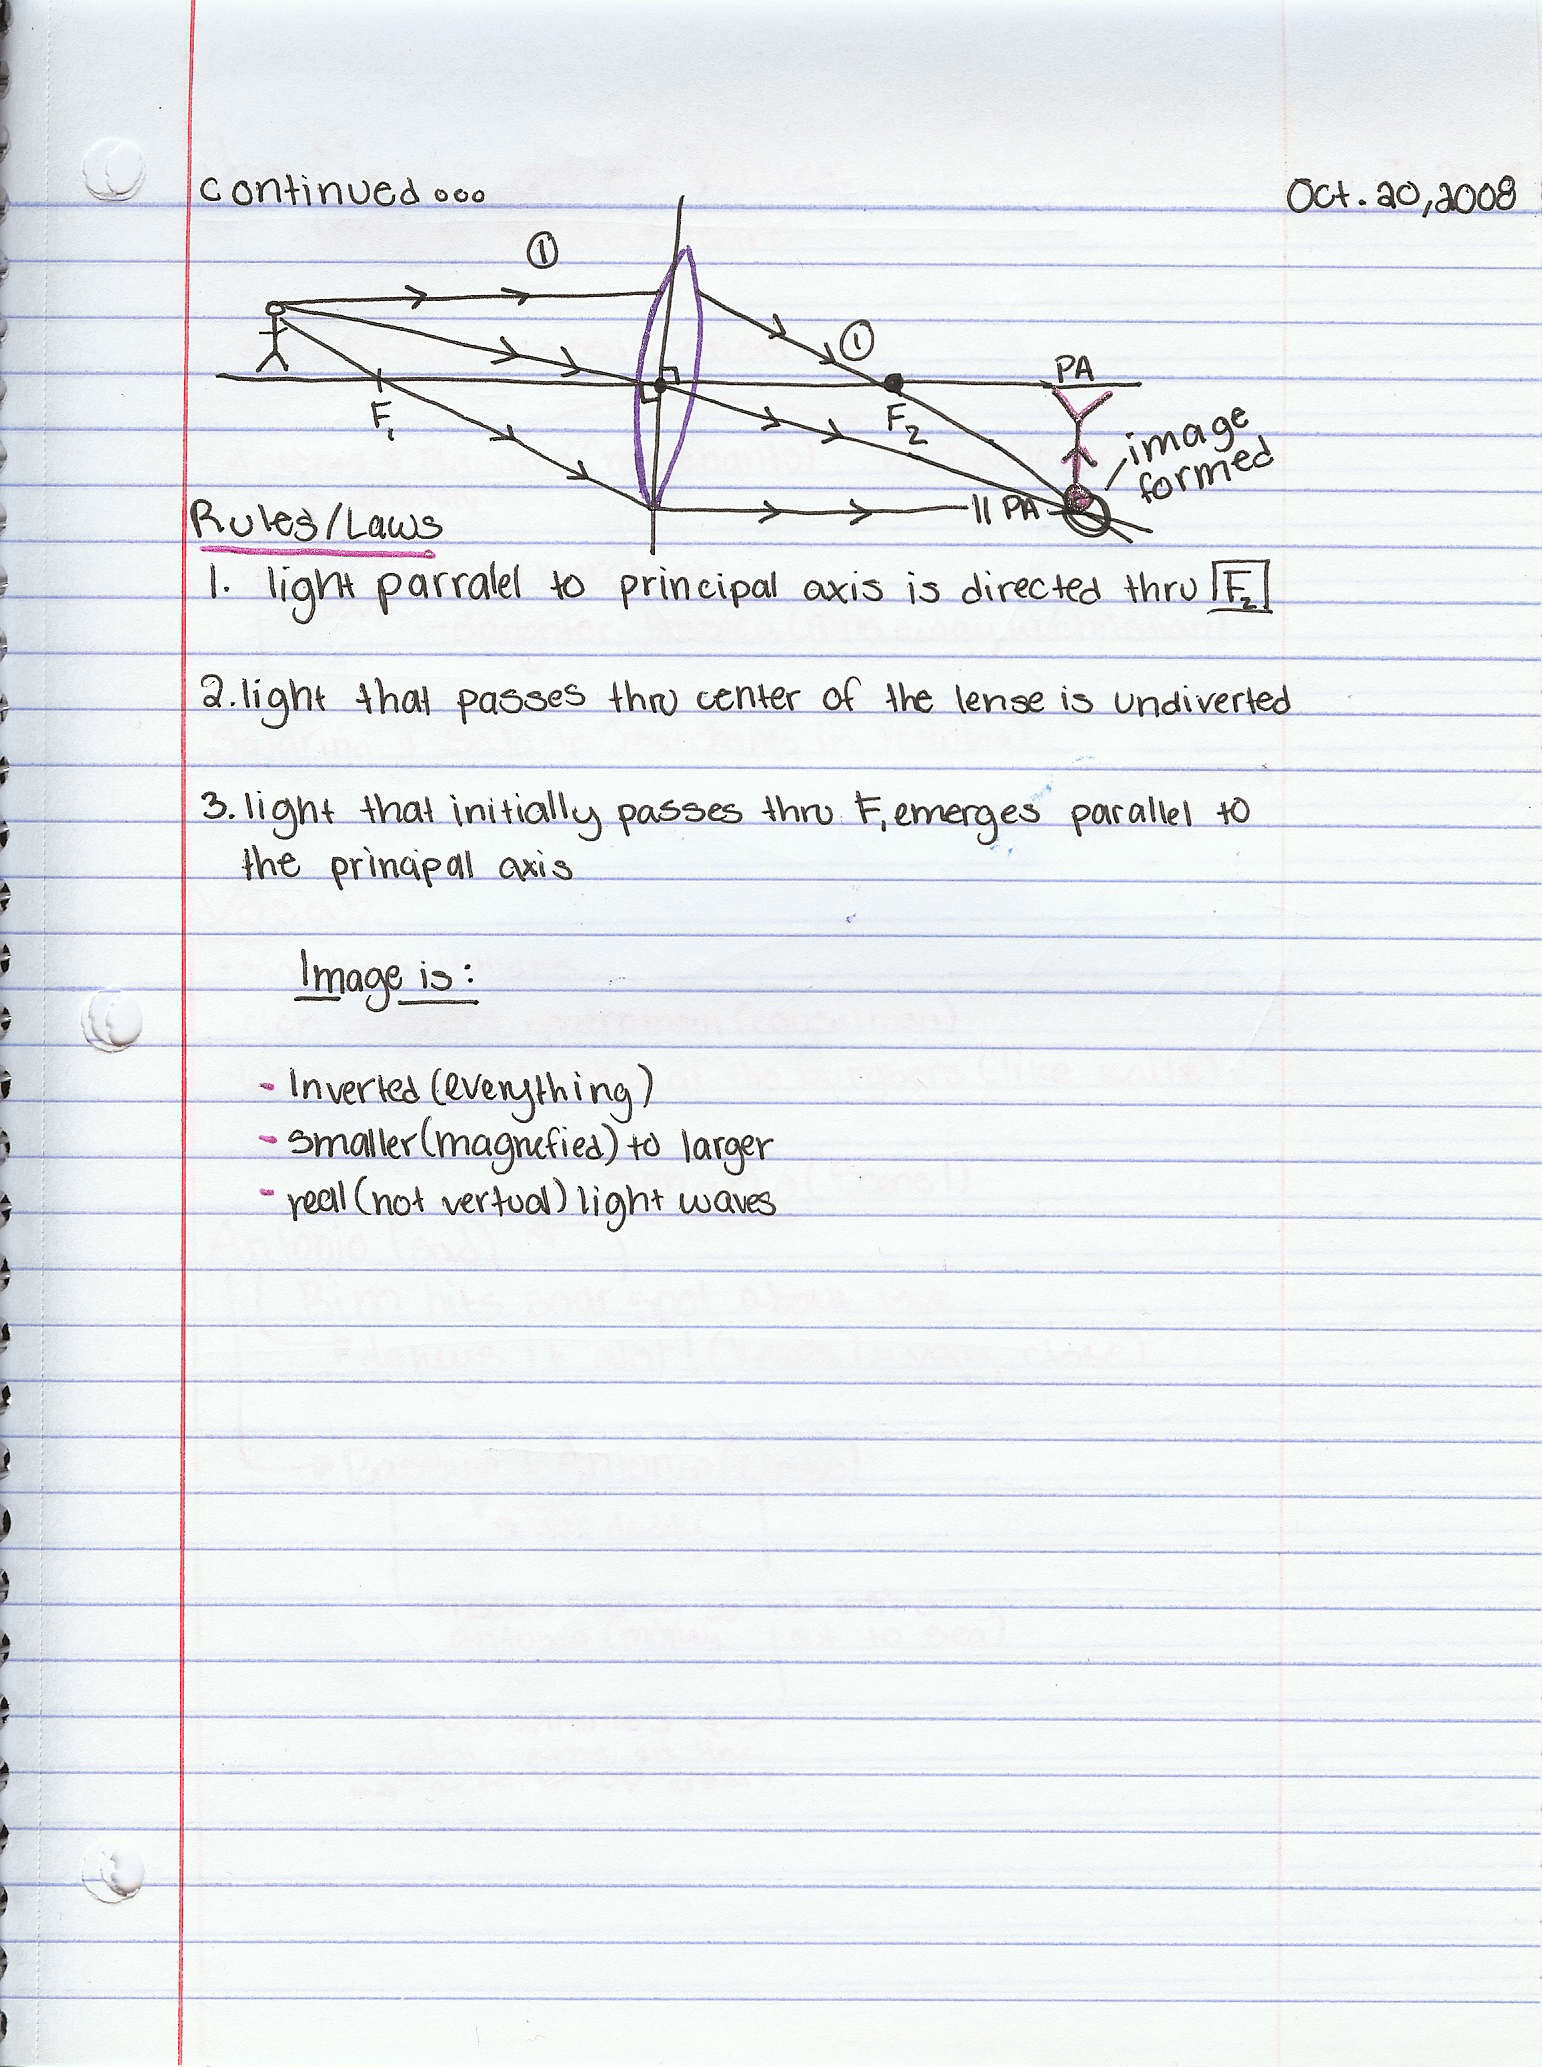 continued...
Oct. 20, 2008
①
①
PA
F₁
F₂
image
formed
|| PA
Rules/Laws
1. light parralel to principal axis is directed thru F₂
2. light that passes thru center of the lense is undiverted
3. light that initially passes thru F₁ emerges parallel to
the principal axis
Image is:
- Inverted (everything)
- smaller (magnefied) to larger
- real (not vertual) light waves